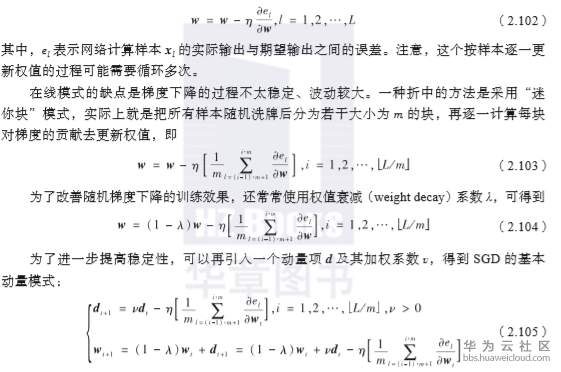 w = w − η ∂e_l/∂w, l = 1,2,⋯,L （2.102）
其中，e_l 表示网络计算样本 x_l 的实际输出与期望输出之间的误差。注意，这个按样本逐一更
新权值的过程可能需要循环多次。
在线模式的缺点是梯度下降的过程不太稳定、波动较大。一种折中的方法是采用“迷
你块”模式，实际上就是把所有样本随机洗牌后分为若干大小为 m 的块，再逐一计算每块
对梯度的贡献去更新权值，即
w = w − η[1/m ∑_{l=(i−1)·m+1}^{i·m} ∂e_l/∂w], i = 1,2,⋯,⌊L/m⌋ （2.103）
为了改善随机梯度下降的训练效果，还常常使用权值衰减（weight decay）系数 λ，可得到
w = (1 − λ)w − η[1/m ∑_{l=(i−1)·m+1}^{i·m} ∂e_l/∂w], i = 1,2,⋯,⌊L/m⌋ （2.104）
为了进一步提高稳定性，可以再引入一个动量项 d 及其加权系数 ν，得到 SGD 的基本
动量模式：
d_{i+1} = νd_i − η[1/m ∑_{l=(i−1)·m+1}^{i·m} ∂e_l/∂w_i], i = 1,2,⋯,⌊L/m⌋, ν > 0
w_{i+1} = (1 − λ)w_i + d_{i+1} = (1 − λ)w_i + νd_i − η[1/m ∑_{l=(i−1)·m+1}^{i·m} ∂e_l/∂w_i] （2.105）
华章图书
华为云社区
bbs.huaweicloud.com